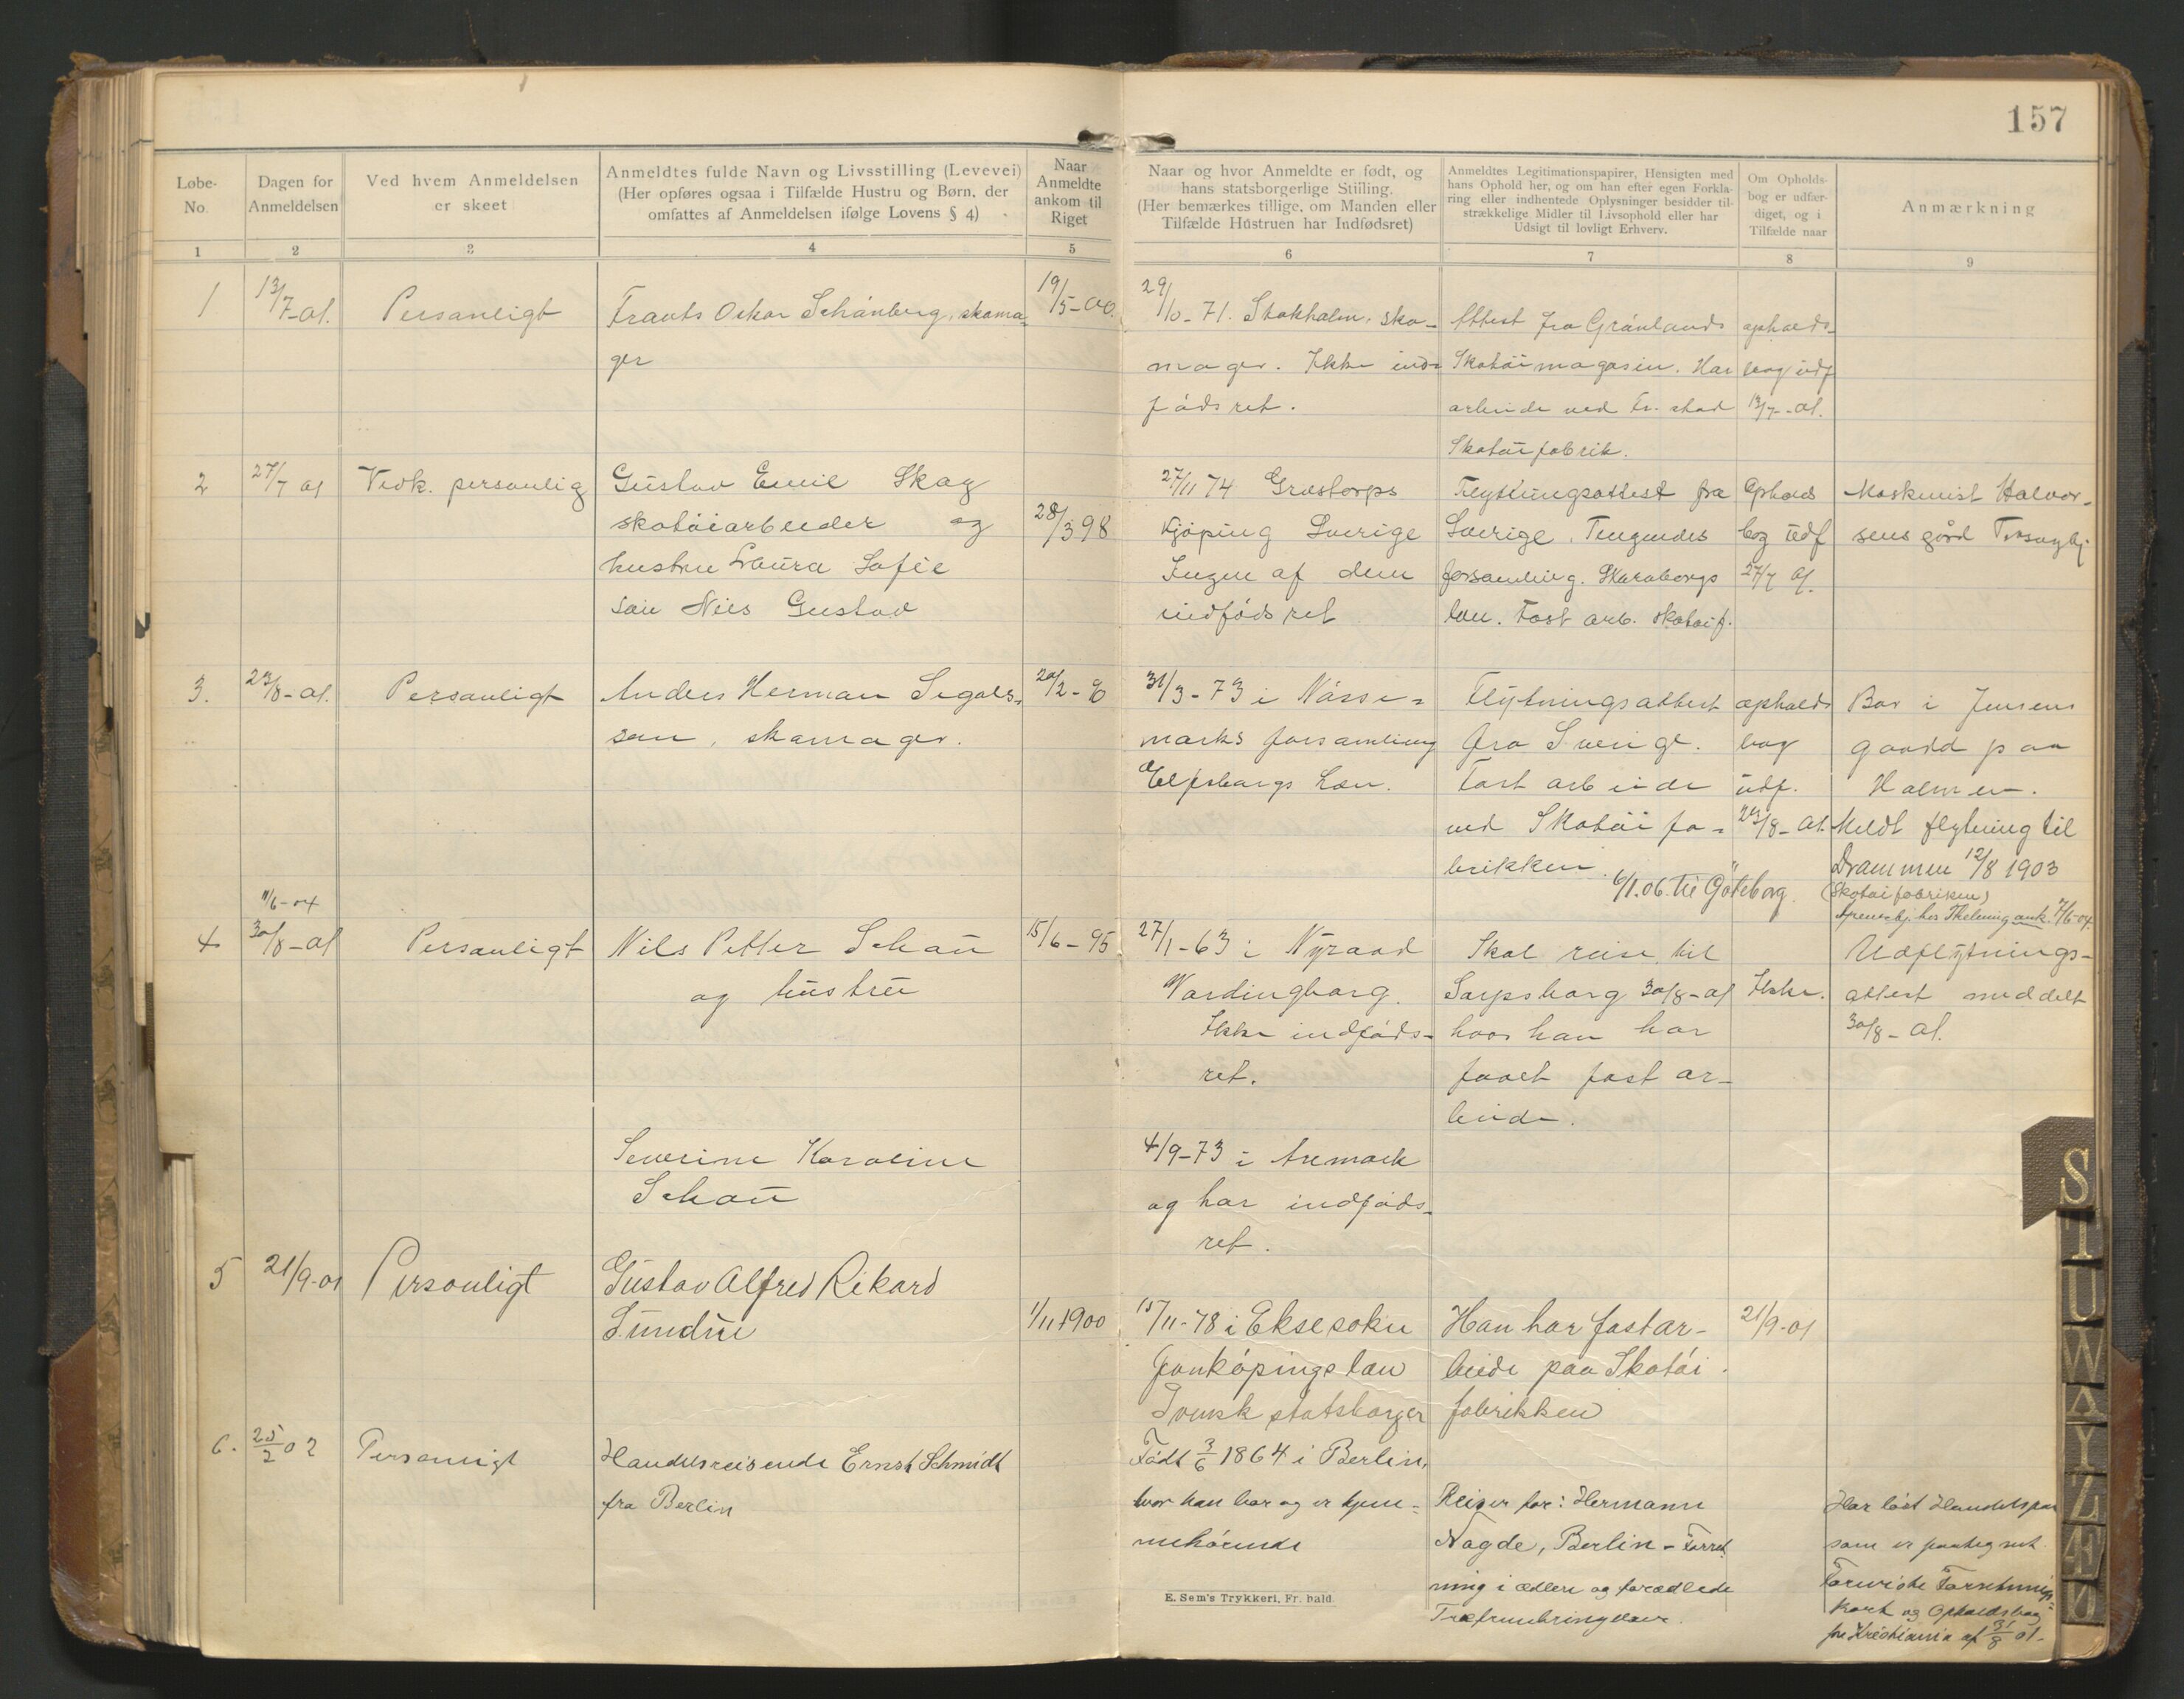 157
Løbe-
No.
Dagen for
Anmeldelsen
Ved hvem Anmeldelsen
er skeet
Anmeldtes fulde Navn og Livsstilling (Levevei)
(Her opføres ogsaa i Tilfælde Hustru og Børn, der
omfattes af Anmeldelsen ifølge Lovens § 4)
Naar
Anmeldte
ankom til
Riget
Naar og hvor Anmeldte er født, og
hans statsborgerlige Stilling.
(Her bemærkes tillige, om Manden eller
Tilfælde Hustruen har Indfødsret)
Anmeldtes Legitimationspapirer, Hensigten med
hans Ophold her, og om han efter egen Forkla-
ring eller indhentede Oplysninger besidder til-
strækkelige Midler til Livsophold eller har
Udsigt til lovligt Erhverv.
Om Opholds-
bog er udfær-
diget, og i
Tilfælde naar
Anmærkning
1 2 3 4 5 6 7 8 9
1
13/7-01.
Personligt
Frants Oskar Schönberg, skoma-
ger
19/5-00.
29/10-71. Stokholm, sko-
mager. Ikke ind-
födsret.
Attest fra Grönlands
Skotöimagasin. Har
arbeide ved Fr.stad
Skotöifabrik.
opholds-
bog udf
13/7-01.
2
27/7 01
Vedk. personlig
Gustav Emil Skog
skotöiarbeider og
hustru Laura Sofie
sön Nils Gustav
28/3 98
27/11 74 Grästorps
Kjöping Sverige
Ingen af dem
indfödsret
Flyttningsattest fra
Sverige. Tengendes
forsamling. Skaraborgs
län. Fast arb. skotöif.
Opholds
bog udf
27/7 01.
Maskinist Halvor-
sens gård
3.
23/8-01.
Personligt
Anders Herman
son, skomager.
20/2-96
31/3-73 i Nösse-
marks forsamling
Elfsborgs Län.
Flytningsattest
fra Sverige.
Fast arbeide
ved Skotöifa-
brikken.
6/1.06 til Göteborg.
opholds
bog
udf.
23/8-01.
Bor i Jensens
gaard paa
Holmen.
Meldt flytning til
Drammen 12/8 1903
(Skotöifabriken)
hos ank. 11/6-04.
11/6-04
4
30/8-01
Personligt
Nils Petter Schou
og hustru
15/6-95
27/1-63 i Nyraad
Vordingborg.
Ikke indföds-
ret.
Skal reise til
Sarpsborg 30/8-01
hvor han har
faaet fast ar-
beide.
Ikke.
Udflytnings-
attest meddelt
30/8-01.
Severine Karoline
Schou
4/9-73 i Aremark
og har indföds-
ret.
5
21/9-01
Personligt
Gustav Alfred Rikard
Sundin
1/11 1900
15/11-78 i Eksesokn
Jonköpings lan
Svensk statsborger
Han har fast ar-
beide paa Skotöi
fabrikken
21/9-01
6.
25/2 02
Personligt
Handelsreisende Ernst Schmidt
fra Berlin
Födt 3/6 1864 i Berlin,
hvor han bor og er hjem-
mehörende
Reiser for: Hermann
Nagde, Berlin - Forret
ning i ædlere og forædlede
Har löst Handelspas
som er paategnet.
Foreviste Forretnings-
kort og Opholdsbog
fra Kristiania af 31/8 01-
E. Sem's Trykkeri, Fr. hald.
S
T
U
W
A
Y
Z
Æ
Ø